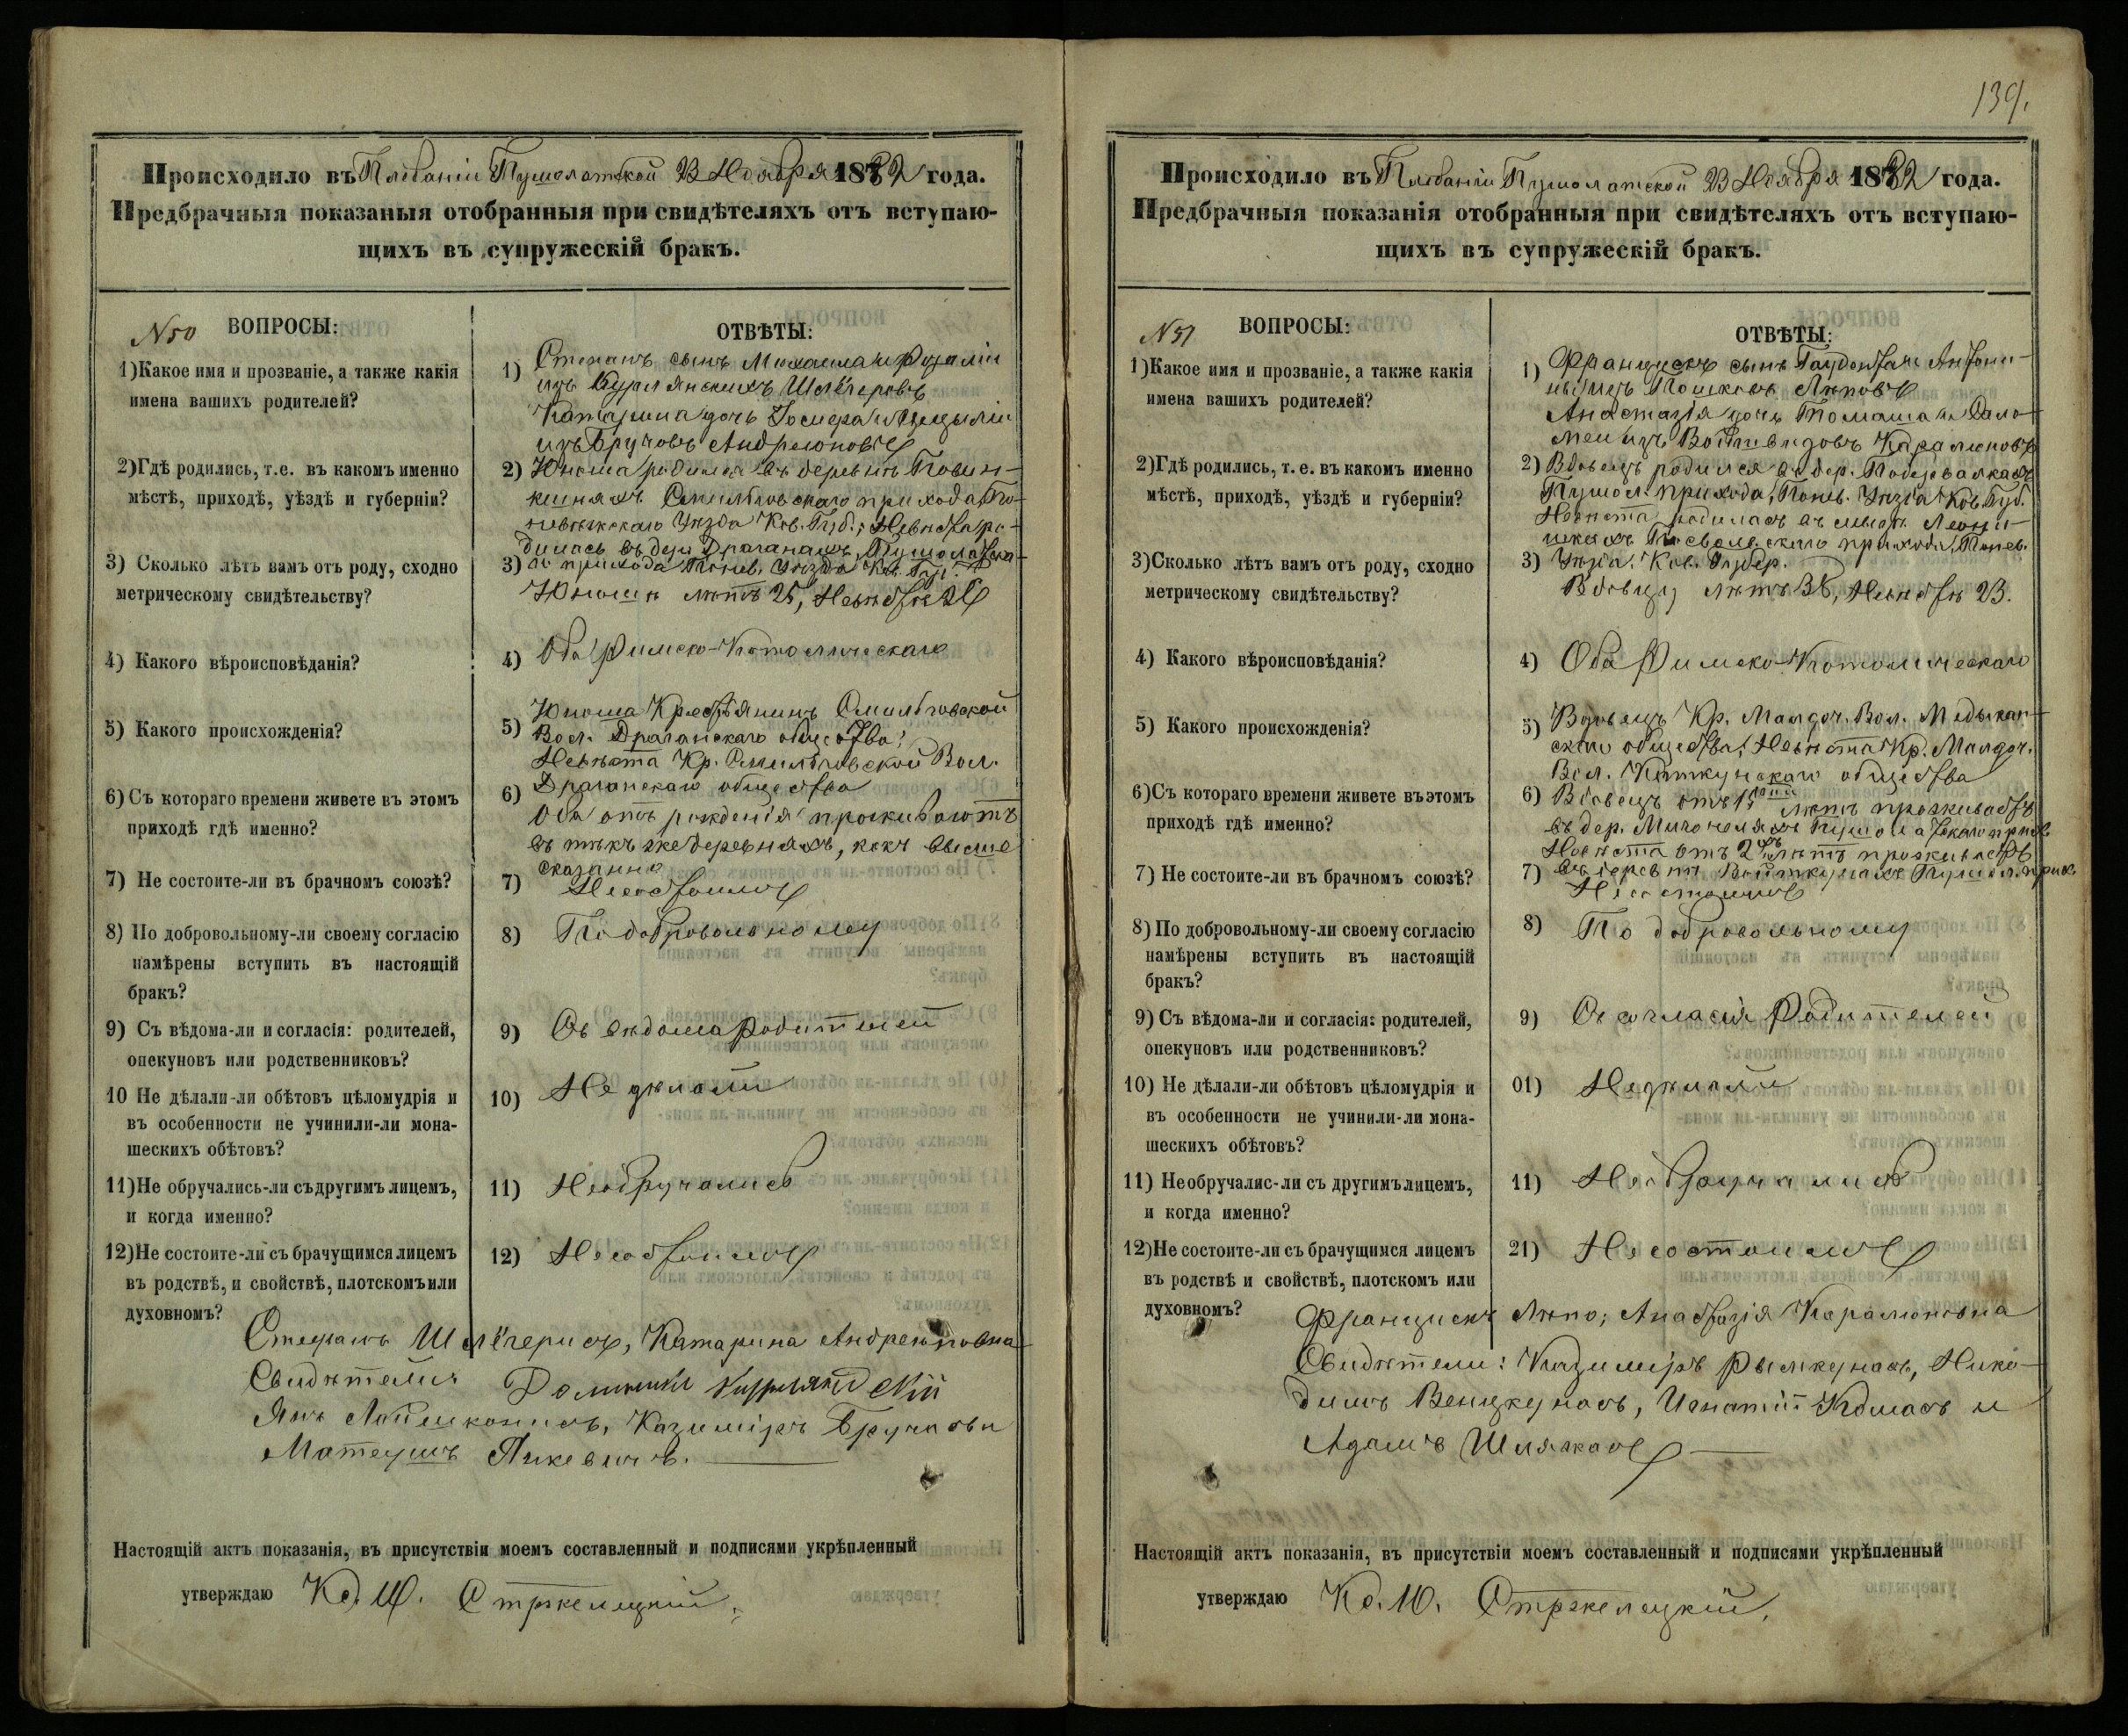 Происходило въ Плебаніи Пумолатской 23 Ноября 1882 года.
Предбрачныя показаныя отобранныя при свидѣтеляхъ отъ вступаю-
щихъ въ супружескій бракъ.
N 50 ВОПРОСЫ:
1) Какое имя и прозваніе, а также какія
имена вашихъ родителей?
2) Гдѣ родились, т.е. въ какомъ именно
мѣстѣ, приходѣ, уѣздѣ и губерніи?
3) Сколько лѣтъ вамъ отъ роду, сходно
метрическому свидѣтельству?
4) Какого вѣроисповѣданія?
5) Какого происхожденія?
6) Съ котораго времени живете въ этомъ
приходѣ гдѣ именно?
7) Не состоите-ли въ брачномъ союзѣ?
8) По добровольному-ли своему согласію
намѣрены вступить въ настоящій
бракъ?
9) Съ вѣдома-ли и согласія: родителей,
опекуновъ или родственниковъ?
10 Не дѣлали-ли обѣтовъ цѣломудрія и
въ особенности не учинили-ли мона-
шескихъ обѣтовъ?
11) Не обручались-ли съ другимъ лицемъ,
и когда именно?
12) Не состоите-ли съ брачущимся лицемъ
въ родствѣ, и свойствѣ, плотскомъ или
духовномъ?
ОТВѢТЫ:
1) Стефанъ сынъ Михаила и Розаліи
изъ Курлянскихъ
Катарина дочь и
изъ Бручовъ
2) Юноша родился въ деревнѣ
Смильговскаго прихода По-
невѣжскаго Уѣзда Ков. Губ.; Невѣста ро-
дилась въ дер. Драганахъ Пумолатска-
3) го прихода Понев. Уѣзда Ков. Губ.
Юношѣ лѣтъ 25, Невѣстѣ
4) Оба Римско-Католическаго
5) Юноша Крестьянинъ Смильговской
Вол. Драганскаго общества;
Невѣста Кр. Смильговской Вол.
6) Драганскаго общества
Оба отъ рожденія проживаютъ
въ тѣхъ же деревняхъ, какъ выше
сказанно
7) Несостоимъ
8) По добровольному
9) Съ вѣдома Родителей
10) Не дѣлали
11) Необручались
12) Несостоимъ
Стефанъ Катарина
Свидѣтели:
Янъ Казиміръ и
Матеушъ
Настоящій актъ показанія, въ присутствіи моемъ составленный и подписями укрѣпленный
утверждаю Кс. Ю. Стржелецкій.
139.
Происходило въ Плебаніи Пумолатской 23 Ноября 1882 года.
Предбрачныя показанія отобранныя при свидѣтеляхъ отъ вступаю-
щихъ въ супружескій бракъ.
N 51 ВОПРОСЫ:
1) Какое имя и прозваніе, а также какія
имена вашихъ родителей?
2) Гдѣ родились, т. е. въ какомъ именно
мѣстѣ, приходѣ, уѣздѣ и губерніи?
3) Сколько лѣтъ вамъ отъ роду, сходно
метрическому свидѣтельству?
4) Какого вѣроисповѣданія?
5) Какого происхожденія?
6) Съ котораго времени живете въ этомъ
приходѣ гдѣ именно?
7) Не состоите-ли въ брачномъ союзѣ?
8) По добровольному-ли своему согласію
намѣрены вступить въ настоящій
бракъ?
9) Съ вѣдома-ли и согласія: родителей,
опекуновъ или родственниковъ?
10) Не дѣлали-ли обѣтовъ цѣломудрія и
въ особенности не учинили-ли мона-
шескихъ обѣтовъ?
11) Необручалис-ли съ другимъ лицемъ,
и когда именно?
12) Не состоите-ли съ брачущимся лицемъ
въ родствѣ и свойствѣ, плотскомъ или
духовномъ?
ОТВѢТЫ:
1) Францискъ сынъ Антони-
ны изъ
Анастазія дочь Томаша и Сало-
меи изъ
2) Вдовецъ родился въ дер.
Пумол. прихода, Понев. Уѣзда Ков. Губ.
Невѣста родилась въ
Посвольскаго прихода, Понев.
3) Уѣзда. Ков. Губер.
Вдовцу лѣтъ 38, Невѣстѣ 23.
4) Оба Римско-Католическаго
5) Вдовецъ Кр. Вол.
скаго общества; Невѣста Кр.
Вол. общества
6) Вдовецъ отъ лѣтъ проживаетъ
въ дер.
Невѣста отъ 2хъ лѣтъ проживаетъ
7) въ деревнѣ Пумол. прих.
Несостоимъ
8) По добровольному
9) Съ согласія Родителей
01) Недѣлали
11) Необручались
21) Несостоимъ
Францискъ Анастазія
Свидѣтели: Казиміръ Нико-
димъ Игнатій и
Адамъ
Настоящій актъ показанія, въ присутствіи моемъ составленный и подписями укрѣпленный
утверждаю Кс. Ю. Стржелецкій.